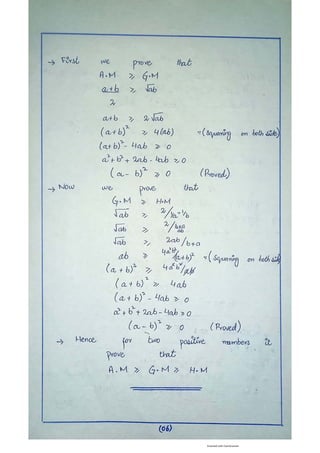 → First we prove that
A.M ≥ G.M
a+b/2 ≥ √ab
a+b ≥ 2√ab
(a+b)² ≥ 4(ab) ∵ (Squaring on both side)
(a+b)² - 4ab ≥ 0
a²+b²+2ab-4ab ≥ 0
(a-b)² ≥ 0 (Proved)
→ Now we prove that
G.M ≥ H.M
√ab ≥ 2/1/a-1/b
√ab ≥ 2/b+a/ab
√ab ≥ 2ab/b+a
ab ≥ 4a²b²/(a+b)² ∵ (Squaring on both side)
(a+b)² ≥ 4a²b²/ab
(a+b)² ≥ 4ab
(a+b)² - 4ab ≥ 0
a²+b²+2ab-4ab ≥ 0
(a-b)² ≥ 0 (Proved)
→ Hence for two positive numbers it
prove that
A.M ≥ G.M ≥ H.M
(06)
Scanned with CamScanner